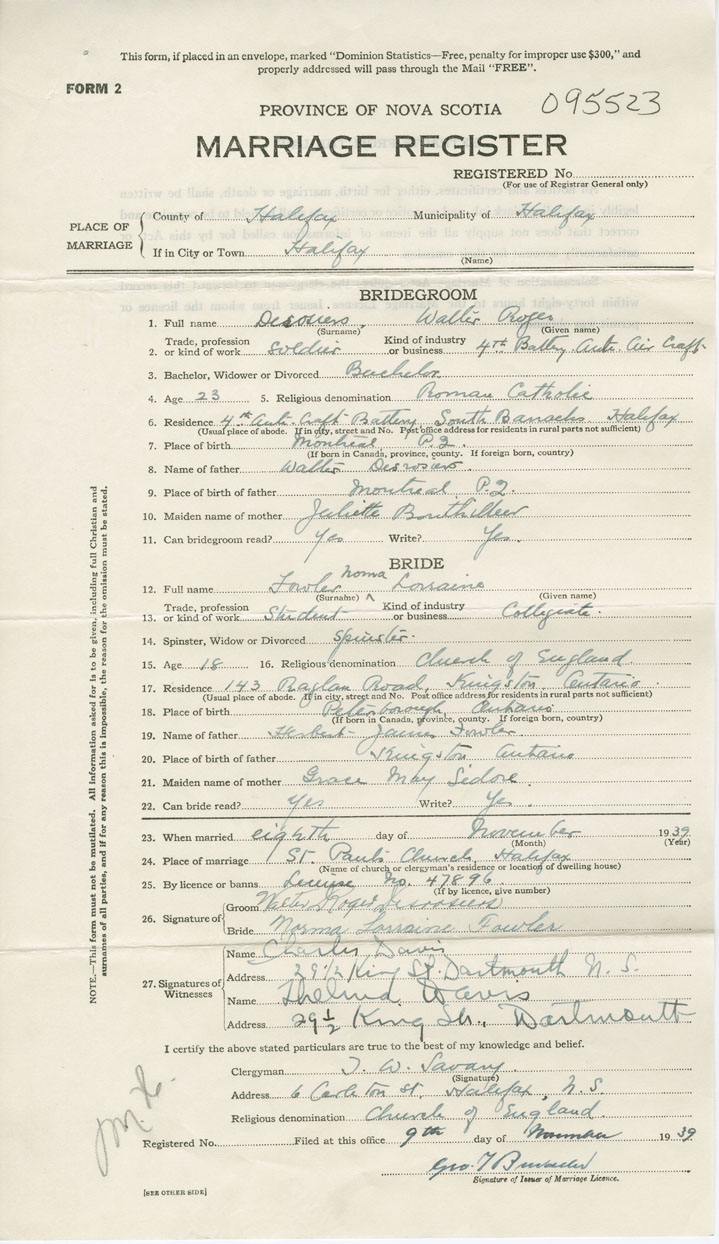 This form, if placed in an envelope, marked "Dominion Statistics—Free, penalty for improper use $300," and
properly addressed will pass through the Mail "FREE".
FORM 2
PROVINCE OF NOVA SCOTIA
095523
MARRIAGE REGISTER
REGISTERED No.
(For use of Registrar General only)
PLACE OF MARRIAGE
County of Halifax Municipality of Halifax
If in City or Town Halifax
(Name)
BRIDEGROOM
1. Full name Desrosiers, Walter Roger
(Surname) (Given name)
2. Trade, profession or kind of work Soldier Kind of industry or business 4th Battery Anti Air Craft
3. Bachelor, Widower or Divorced Bachelor
4. Age 23 5. Religious denomination Roman Catholic
6. Residence 4th Anti-Craft Battery South Barracks Halifax
(Usual place of abode. If in city, street and No. Post office address for residents in rural parts not sufficient)
7. Place of birth Montreal, P.Q.
(If born in Canada, province, county. If foreign born, country)
8. Name of father Walter Desrosiers
9. Place of birth of father Montreal P.Q.
10. Maiden name of mother Juliette
11. Can bridegroom read? Yes Write? Yes.
BRIDE
12. Full name Fowler Norma Lorraine
(Surname) (Given name)
13. Trade, profession or kind of work Student Kind of industry or business Collegiate.
14. Spinster, Widow or Divorced Spinster.
15. Age 18 16. Religious denomination Church of England
17. Residence 143 Raglan Road, Kingston Ontario
(Usual place of abode. If in city, street and No. Post office address for residents in rural parts not sufficient)
18. Place of birth Peterborough Ontario
(If born in Canada, province, county. If foreign born, country)
19. Name of father Herbert James Fowler
20. Place of birth of father Kingston Ontario
21. Maiden name of mother Grace May Sedore
22. Can bride read? Yes Write? Yes.
23. When married eighth day of November 1939
(Month) (Year)
24. Place of marriage St. Paul's Church, Halifax
(Name of church or clergyman's residence or location of dwelling house)
25. By licence or banns License No. 47896
(If by licence, give number)
26. Signature of
Groom Walter Roger Desrosiers
Bride Norma Lorraine Fowler
27. Signatures of Witnesses
Name Charles Davis
Address 29 1/2 King St. Dartmouth N.S.
Name Thelma Davis
Address 29 1/2 King St., Dartmouth
I certify the above stated particulars are true to the best of my knowledge and belief.
Clergyman T. W. Savary
(Signature)
Address 6 Carleton St. Halifax, N.S.
Religious denomination Church of England.
Registered No. Filed at this office 9th day of November 1939
Geo. T
Signature of Issuer of Marriage Licence.
[SEE OTHER SIDE]
NOTE.—This form must not be mutilated. All information asked for is to be given, including full Christian and
surnames of all parties, and if for any reason this is impossible, the reason for the omission must be stated.